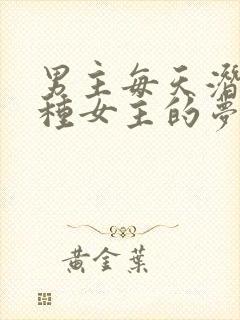 男主每天潛
種女主的夢
黃金葉